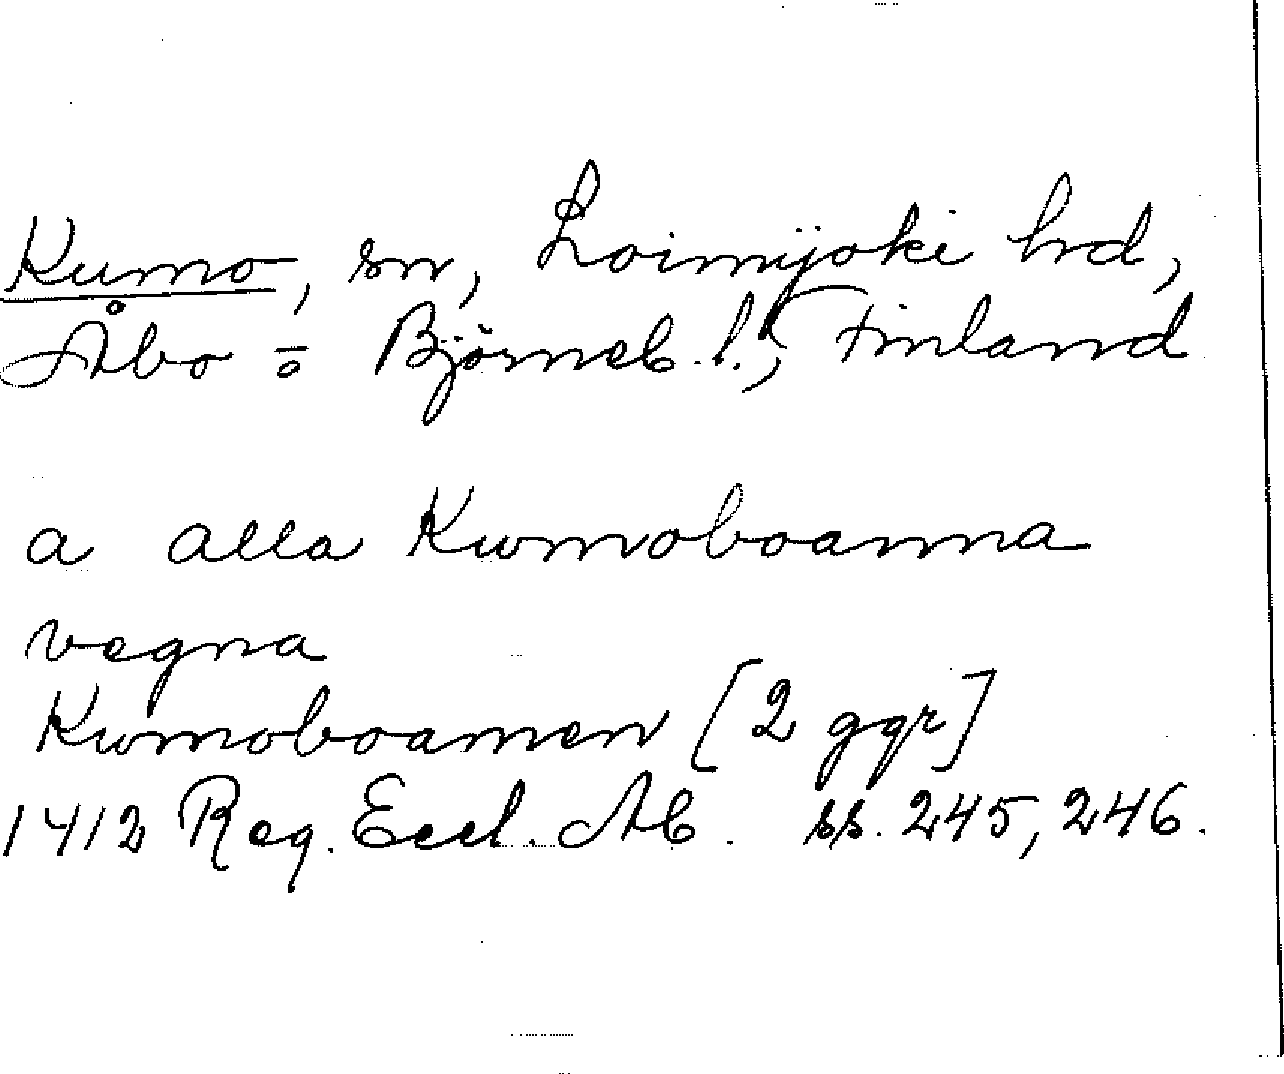 Kumo, sn, Loimijoki hd,
Åbo o Björneb. l., Finland
a alla Kwmoboanna
vegna
Kwmoboamen [2 ggr]
1412 Reg. Eccl. Ab. ss. 245, 246.